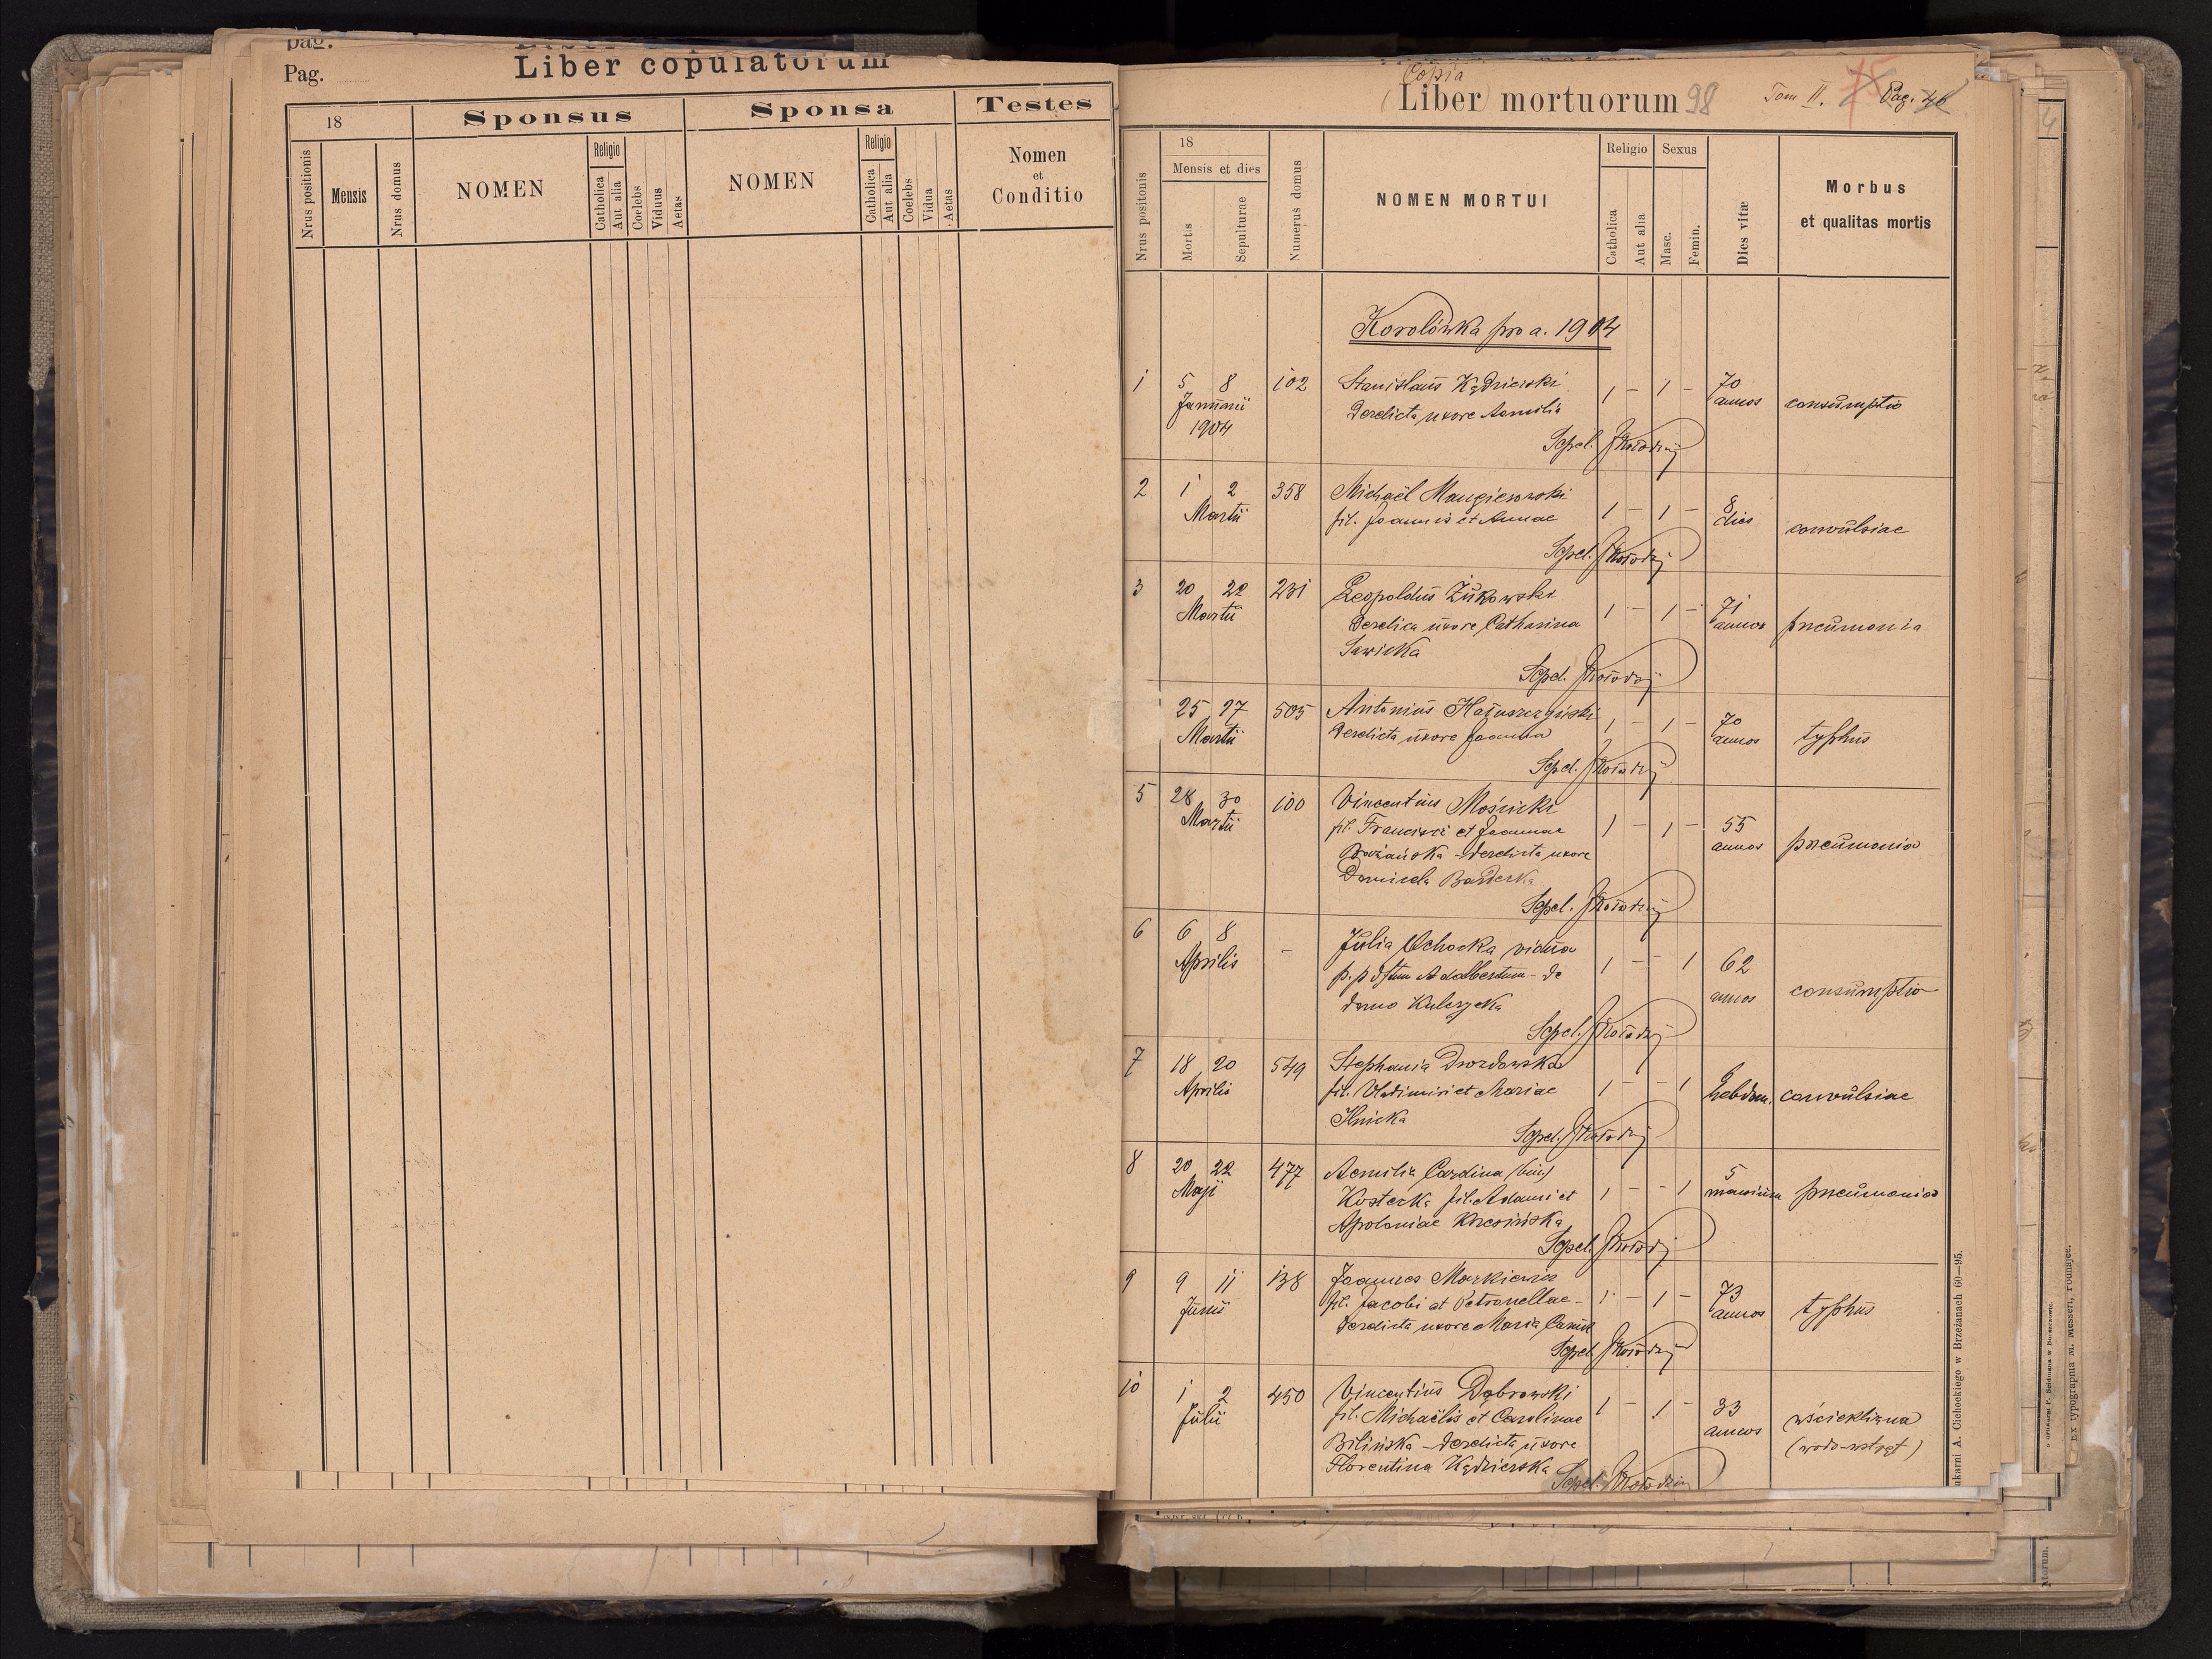 Pag.
Liber copulatorum
18
Sponsus
Sponsa
Testes
Nrus positionis
Mensis
Nrus domus
NOMEN
Religio
Catholica
Aut alia
Coelebs
Viduus
Aetas
NOMEN
Religio
Catholica
Aut alia
Coelebs
Vidua
Aetas
Nomen
et
Conditio
Copia
(Liber) mortuorum 98 Tom II. Pag. 46
Nrus positonis
18
Mensis et dies
Mortis
Sepulturae
Numerus domus
NOMEN MORTUI
Religio
Catholica
Aut alia
Sexus
Masc.
Femin.
Dies vitæ
Morbus
et qualitas mortis
Korolówka pro a. 1904
1 5 8 102 Stanislaus Kędzierski 1 - 1 - 70
Januarii derelicta uxore Aemilia annos consumptio
1904
Sepel.
2 1 2 358 Michaël Mangierowski 1 - 1 - 8
Martii fil. Joannis et Annae dies convulsiae
Sepel.
3 20 22 231 Leopoldus Żukowski 1 - 1 - 71
Martii derelica uxore Catharina annos pneumonia
Sawicka
Sepel.
25 27 505 Antonius Hałuszczyński 1 - 1 - 70
Martii derelicta uxore Joanna annos typhus
Sepel.
5 28 30 100 Vincentius Mośicki
Martii fil. Francisci et Joannae 1 - 1 - 55
derelicta uxore annos pneumonia
Sepel.
6 6 8 - Julia Ochocka vidua
Aprilis Adalbertum - de 1 - - 1 62
domo Kulczycka annos consumptio
Sepel.
7 18 20 549 Stephania Drozdowska
Aprilis fil. Vladimiri et Mariae 1 - - 1 hebdom. convulsiae
Ilnicka
Sepel.
8 20 22 477 Aemilia Cardina (bin.) 5
Maji Kosterka fil. Adami et 1 - - 1 mensium pneumonia
Apoloniae
Sepel.
9 9 11 138 Joannes Markiewicz
Junii fil. Jacobi et Petronellae - 1 - 1 - 73
derelicta uxore Maria annos typhus
Sepel.
10 1 2 450 Vincentius Dąbrowski
Julii fil. Michaëlis et Carolinae 1 - 1 - 33
Bilińska - derelicta uxore annos wścieklizna
Florentina Kędzierska (wodo-wstręt)
Sepel.
ukarni A. Cichockiego w Brzeżanach 60—95.